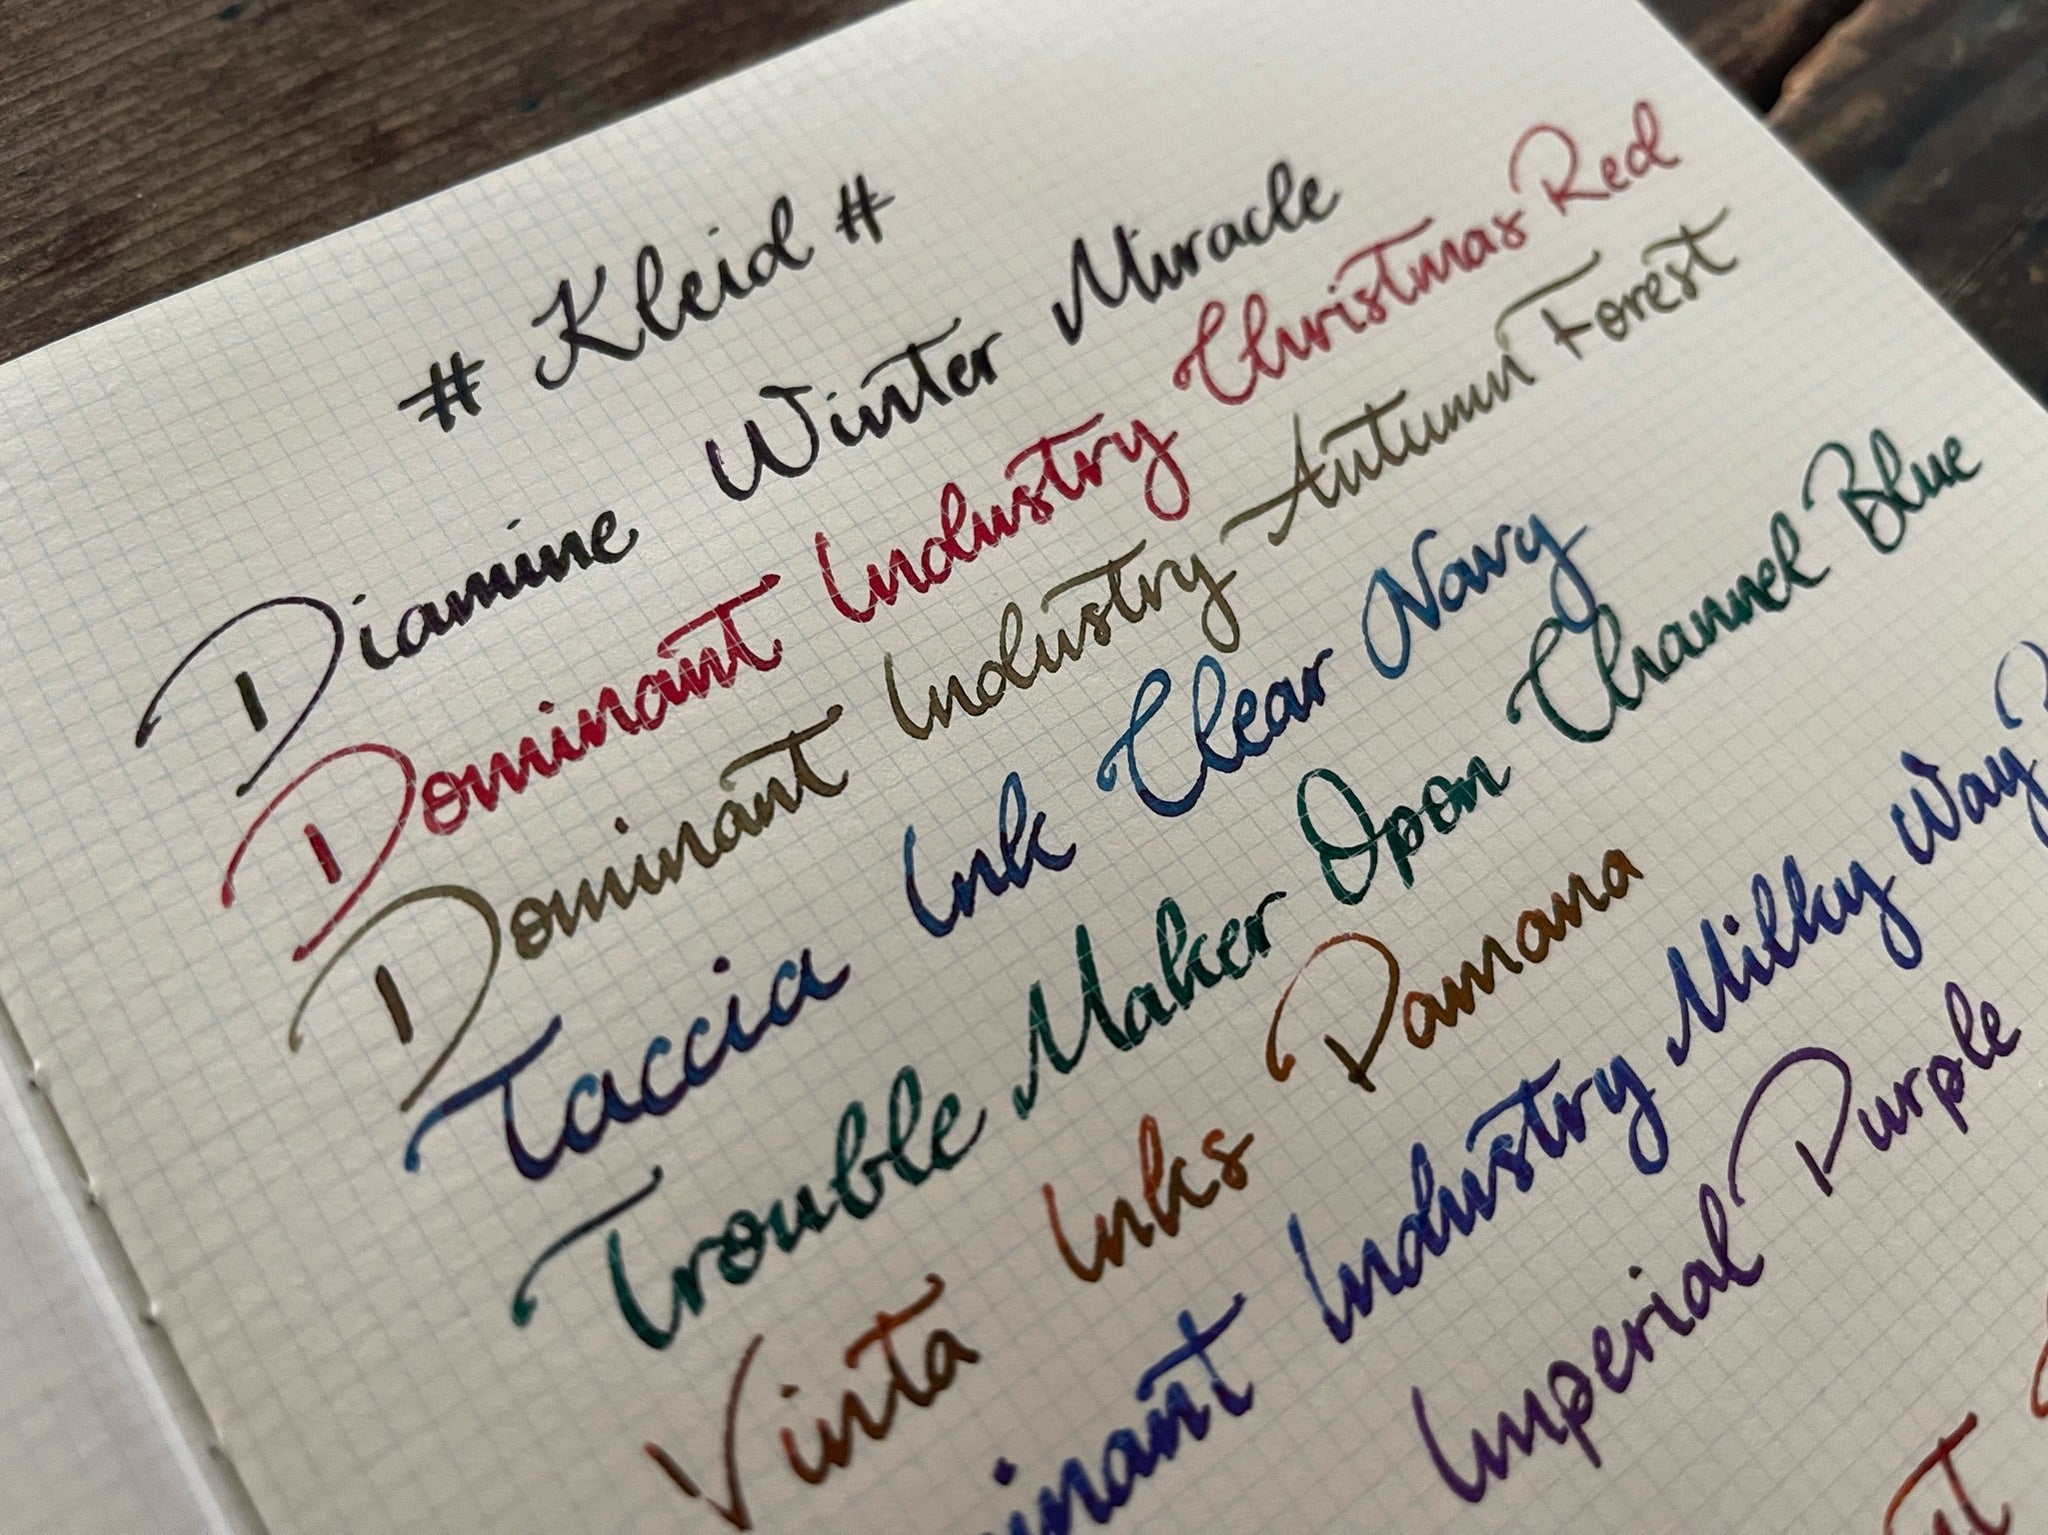 # Kleid #
Diamine Winter Miracle
Dominant Industry Christmas Red
Dominant Industry Autumn Forest
Taccia Ink Clear Navy
Trouble Maker Opon Channel Blue
Vinta Inks Damana
inant Industry Milky Way
Imperial Purple